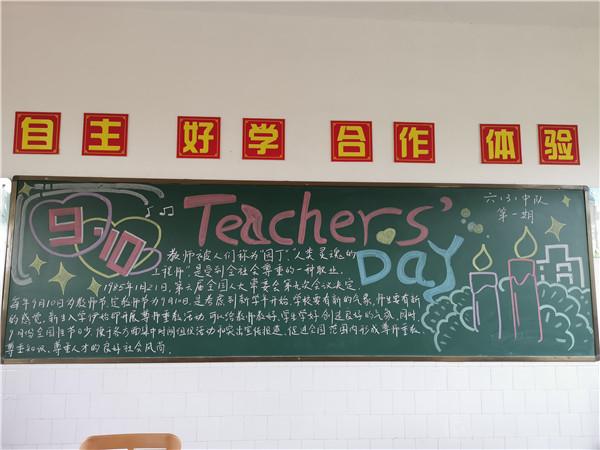 自主 好学 合作 体验
9.10
Teachers'
Day
六(3)中队
第一期
教师被人们称为"园丁","人类灵魂的
工程师",是受到全社会尊重的一种职业.
1985年1月21日,第六届全国人大常委会第九次会议决定
每年9月10日为教师节,定教师节为9月10日,是考虑到新学年开始,学校要有新的气象,师生要有新
的感觉,新生入学伊始即开展尊师重教活动,可以给教师教好,学生学好创造良好的气氛,同时,
9月份全国性节日少,便于各方面集中时间组织活动和突出宣传报道,促进全国范围内形成尊师重教,
尊重知识、尊重人才的良好社会风尚.